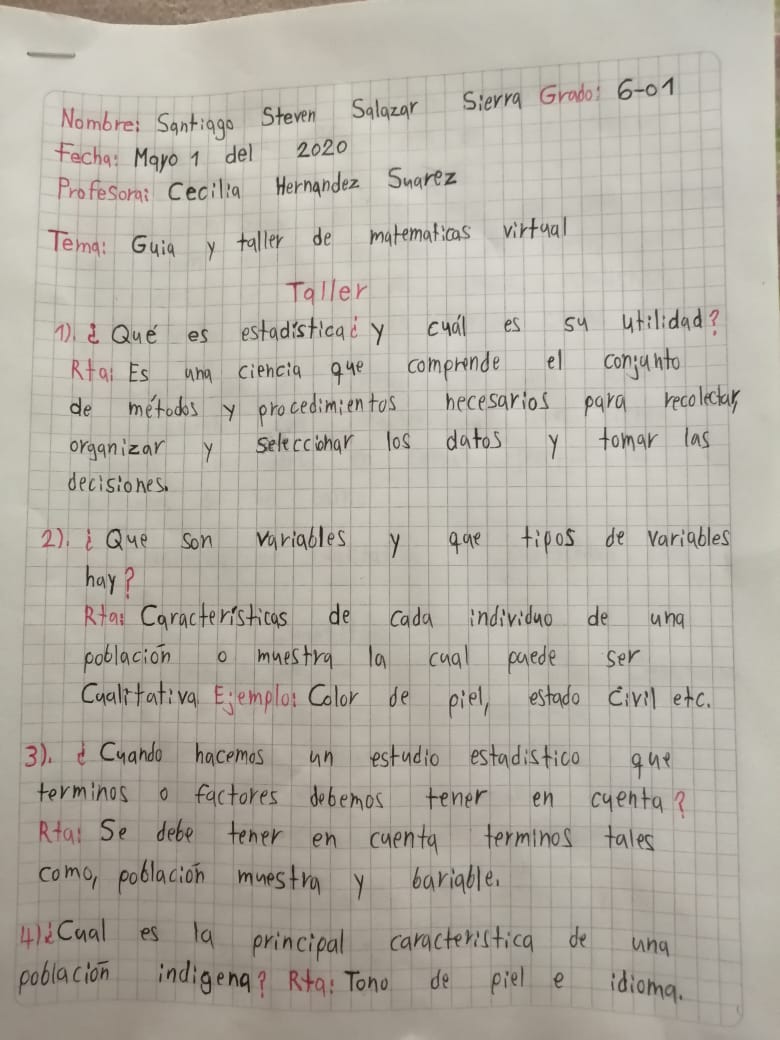 Nombre: Santiago Steven Salazar Sierra Grado: 6-01
Fecha: Mayo 1 del 2020
Profesora: Cecilia Hernandez Suarez
Tema: Guia y taller de matematicas virtual
Taller
1). ¿Qué es estadistica¿ y cuál es su utilidad?
Rta: Es una ciencia que comprende el conjunto
de métodos y procedimientos necesarios para recolectar,
organizar y seleccionar los datos y tomar las
decisiones.
2). ¿Que son variables y que tipos de variables
hay?
Rta: Caracteristicas de cada individuo de una
población o muestra la cual puede ser
Cualitativa Ejemplo: Color de piel, estado civil etc.
3). ¿Cuando hacemos un estudio estadistico que
terminos o factores debemos tener en cuenta?
Rta: Se debe tener en cuenta terminos tales
como, población muestra y bariable.
4)¿Cual es la principal caracteristica de una
población indigena? Rta: Tono de piel e idioma.